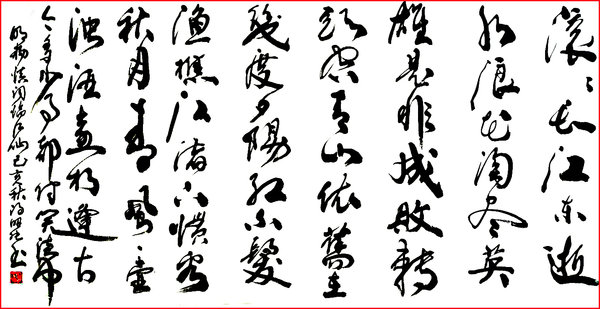 滚滚长江東逝
水浪花淘尽英
雄是非成敗轉
頭空青山依舊在
幾度夕陽红白髮
漁樵江渚上慣看
秋月春風一壶
浊酒喜相逢古
今多少事都付笑谈中
明楊慎词临江仙己亥秋书